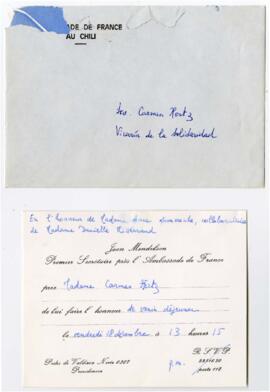 ADE DE FRANCE
AU CHILI
Sra. Carmen
Vicaría de la Solidaridad
En l'honneur de Madame collaboratrice
de Madame Danielle Mitterrand
Jean Mendelson
Premier Secrétaire près l'Ambassade de France
prie Madame Carmen
de lui faire l'honneur de venir déjeuner
le vendredi 18 décembre à 13 heures 15
Pedro de Valdivia Norte
Providencia
p.m.
R.S.V.P.
poste